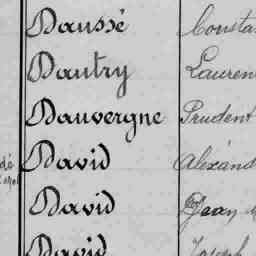 Daussé Consta
Dautry Lauren
Dauvergne Prudent
dé David Alexand
David Jean
David Joseph